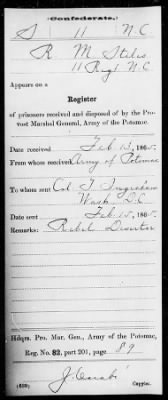 Confederate.
S 11 N C
R. M. Stiles
11 Regt N.C
Appears on a
Register
of prisoners received and disposed of by the Provost Marshal General, Army of the Potomac.
Date received Feb 13, 1865.
From whom received Army of Potomac
To whom sent Col T Ingraham
Wash. D.C
Date sent Feb 15, 1865.
Remarks: Rebel Deserter
Hdqrs. Pro. Mar. Gen., Army of the Potomac,
Reg. No. 82, part 201, page 89
(639)
Copyist.